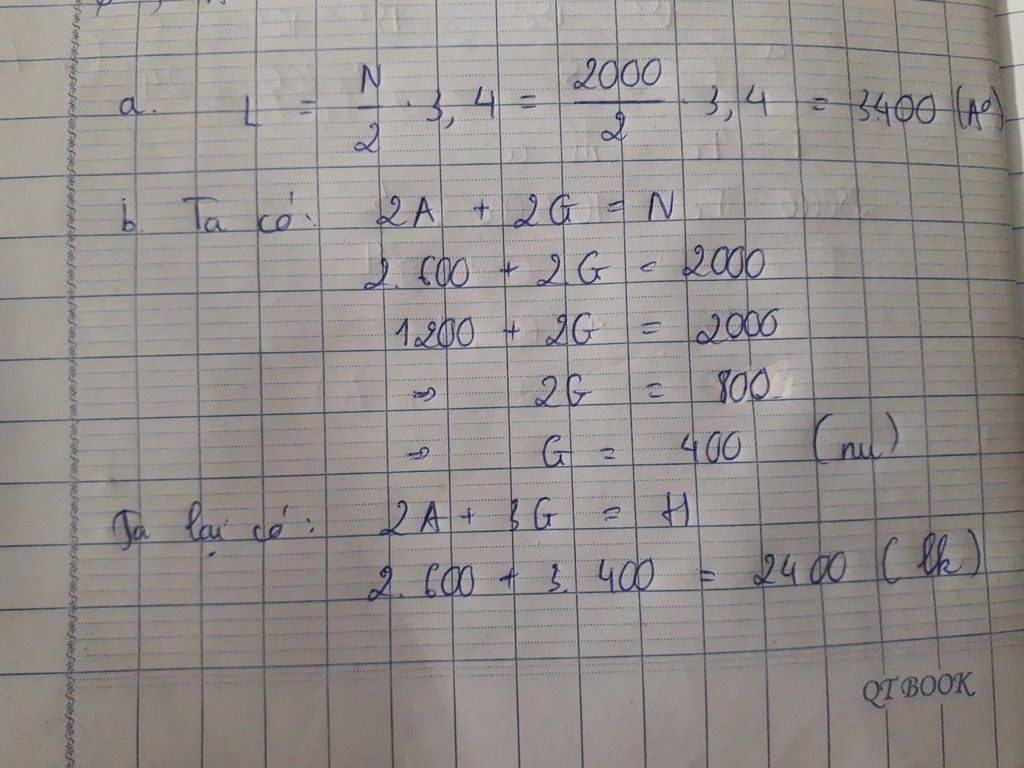 a. L = N/2 . 3,4 = 2000/2 . 3,4 = 3400 (A°)
b. Ta có: 2A + 2G = N
2.600 + 2G = 2000
1200 + 2G = 2000
⇒ 2G = 800
⇒ G = 400 (nu)
Ta lại có: 2A + 3G = H
2.600 + 3.400 = 2400 (lk)
QTBOOK